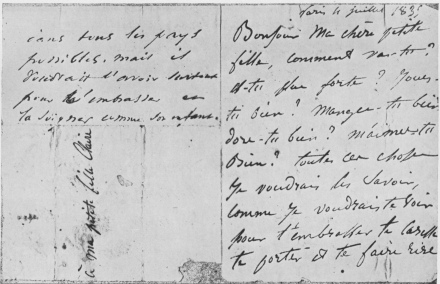 Paris 4 juillet 183
Bonjour Ma chère petite
fille, comment vas-tu?
es-tu plus forte? Joues-
tu bien? Manges-tu bien
dors-tu bien? m'aimes-tu
Bien? toutes ces choses
Je voudrais les savoir,
comme Je voudrais te voir
pour t'embrasser te caresser
te porter et te faire rire
dans tous les pays
possibles. mais il
voudrait t'avoir surtout
pour t'embrasser et
te soigner comme son enfant.
à ma petite fille Claire